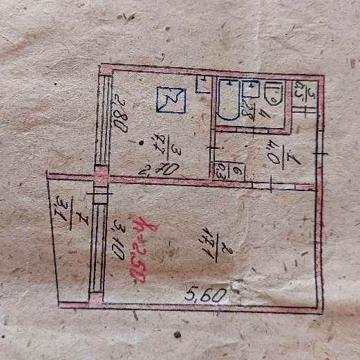 2,80
3
7,7
2,70
4
2,8
5
0,3
1
4,0
6
0,3
7
3,1
3,10
h=2.50
2
17,1
5,60